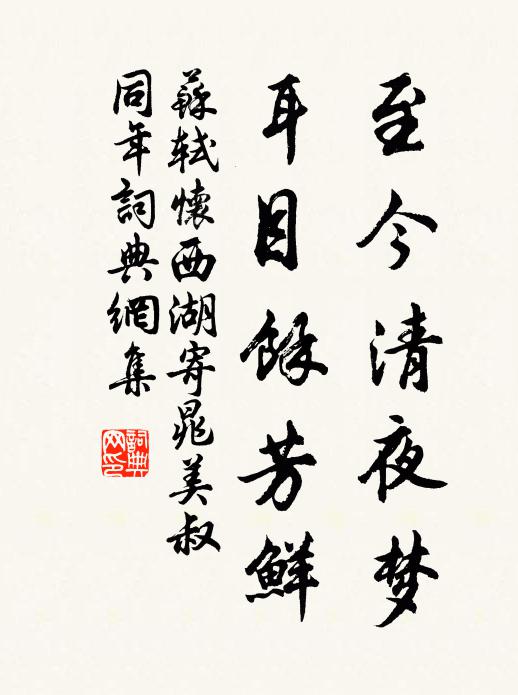 至今清夜梦
耳目餘芳鮮
蘇軾懷西湖寄晁美叔
同年詞典網集
詞典网印